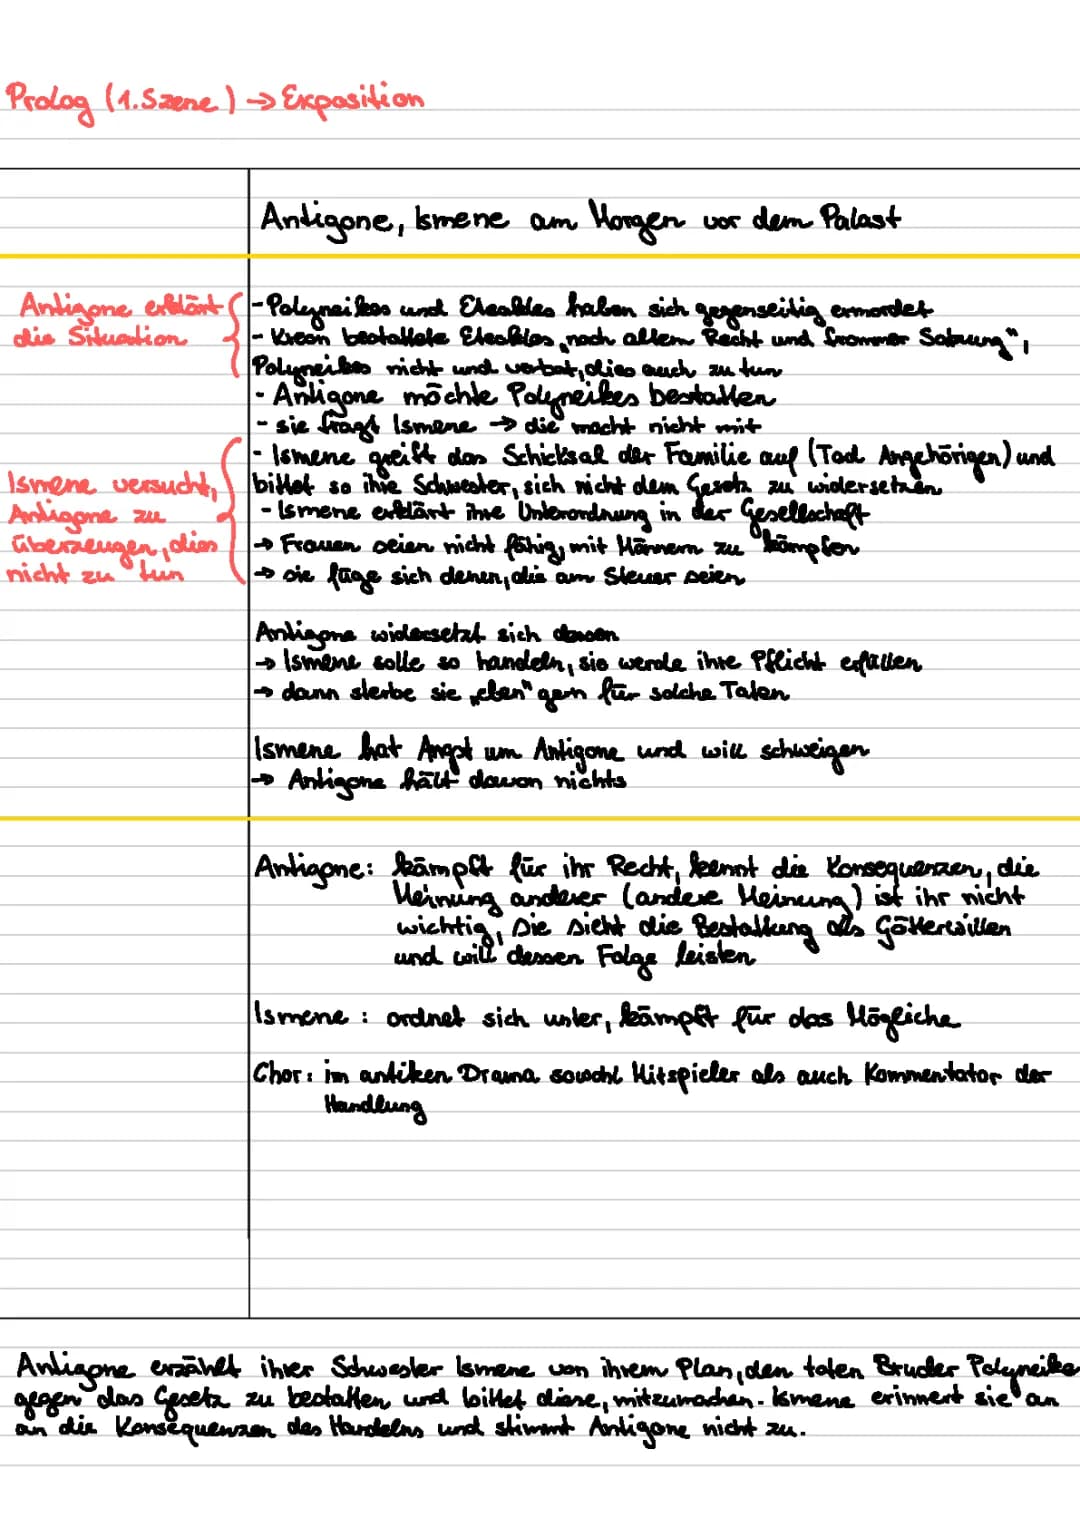 Prolog (1. Szene) → Exposition
Antigone, Ismene am Morgen vor dem Palast
Antigone erklärt
die Situation
- Polyneikes und Eteokles haben sich gegenseitig ermordet
- Kreon bestattete Eteokles „nach altem Recht und frommer Satzung",
Polyneikes nicht und verbat, dies auch zu tun
- Antigone möchte Polyneikes bestatten
- sie fragt Ismene → die macht nicht mit
Ismene versucht,
Antiogne zu
überzeugen, dies
nicht zu tun
- Ismene greift das Schicksal der Familie auf (Tod Angehörigen) und
bittet so ihre Schwester, sich nicht dem Gesetz zu widersetzen
- Ismene erklärt ihre Unterordnung in der Gesellschaft
→ Frauen seien nicht fähig, mit Männern zu kämpfen
→ sie füge sich denen, die am Steuer seien
Antigone widersetzt sich dessen
→ Ismene solle so handeln, sie werde ihre Pflicht erfüllen
→ dann sterbe sie „eben" gern für solche Taten
Ismene hat Angst um Antigone und will schweigen
→ Antigone hält davon nichts
Antigone: kämpft für ihr Recht, kennt die Konsequenzen, die
Meinung anderer (andere Meinung) ist ihr nicht
wichtig, Sie sieht die Bestattung als Götterwillen
und will dessen Folge leisten
Ismene: ordnet sich unter, kämpft für das Mögliche
Chor: im antiken Drama sowohl Mitspieler als auch Kommentator der
Handlung
Antigone erzählt ihrer Schwester Ismene von ihrem Plan, den toten Bruder Polyneike
gegen das Gesetz zu bestatten und bittet diese, mitzumachen. Ismene erinnert sie an
an die Konsequenzen des Handelns und stimmt Antigone nicht zu.